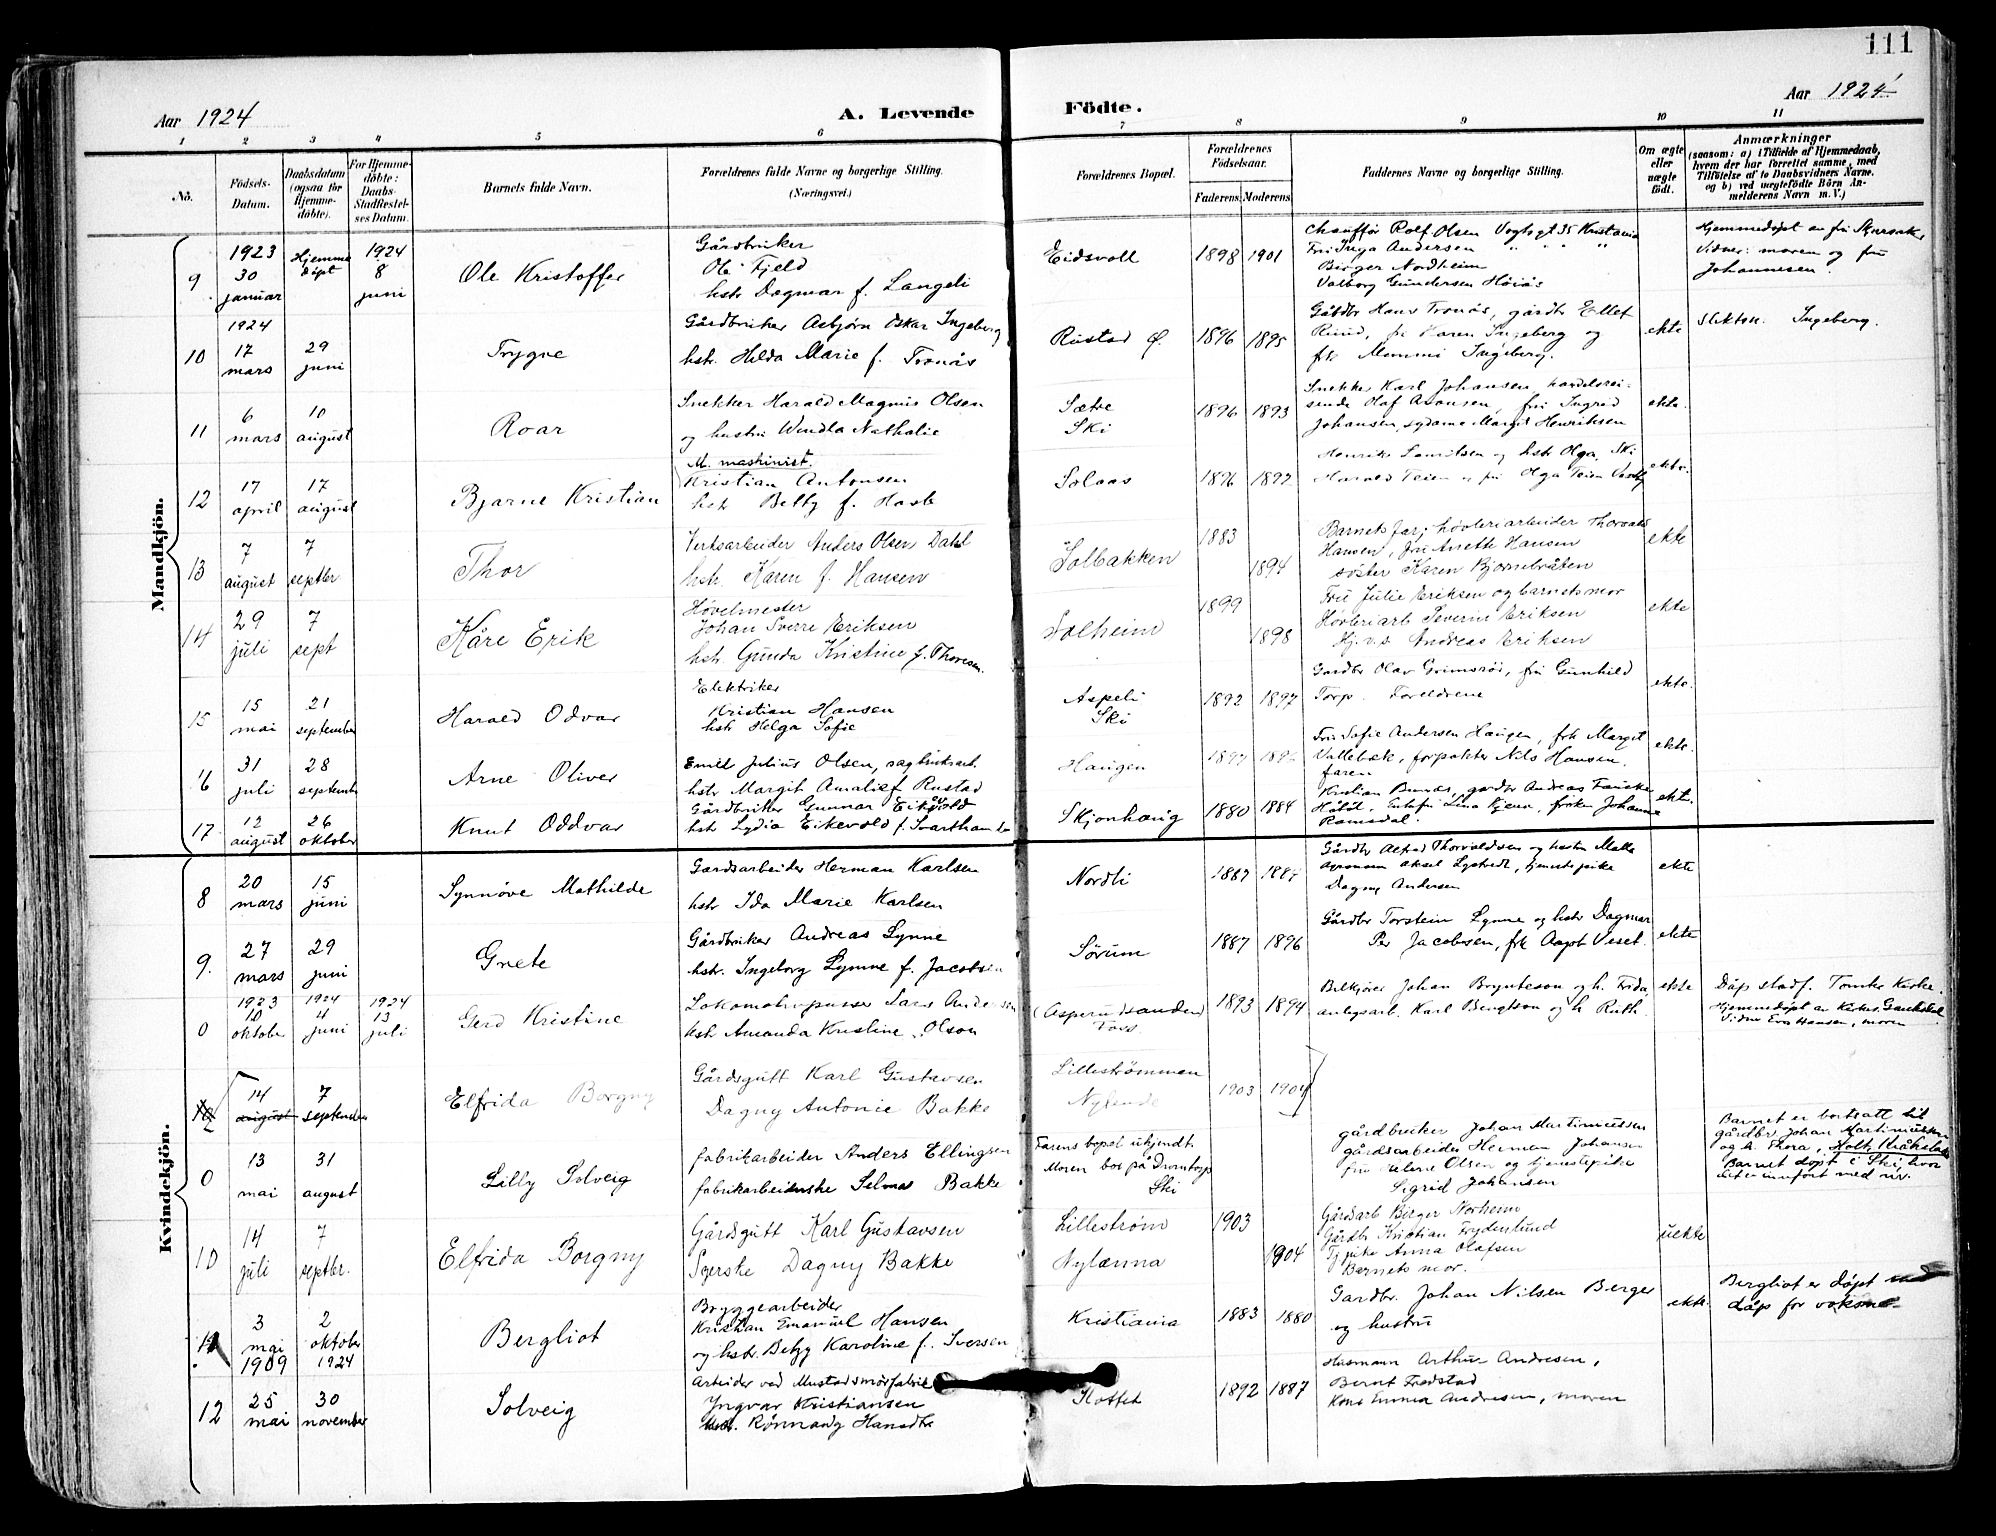 111
Aar 1924
A. Levende
Födte.
Aar 1924
1 2 3 4 5 6 7 8 9 10 11
Nö.
Födsels-Datum.
Daabsdatum (ogsaa for Hjemme-döbte).
For Hjemme-döbte: Daabs-Stadfæstel-ses Datum.
Barnets fulde Navn.
Forældrenes fulde Navne og borgerlige Stilling. (Næringsvei.)
Forældrenes Bopæl.
Forældrenes Födselsaar.
Faderens Moderens
Faddernes Navne og borgerlige Stilling.
Om ægte eller uægte födt.
Anmærkninger
(saasom: a) i Tilfælde af Hjemmedaab, hvem der har forrettet samme, med Tilföielse af to Daabsvidners Navne, og b) ved uægtefödte Börn An-melderens Navn m. V.)
Mandkjön.
9
1923 30 januar
Hjemme døpt
1924 8 juni
Ole Kristoffer
Gårdbruker
Ole Fjeld
hstr. Dagmar f. Langeli
Eidsvoll
1898 1901
Chauffør Rolf Olsen Vogtsgt 35 Kristiania
Fru Inga Andersen " " "
Birger Nordheim
Valborg Gundersen Høiås
Hjemmedøpt av fru
Vidner: moren og fru
Johannesen.
10
1924 17 mars
29 juni
Trygve
Gårdbruker Asbjørn Oskar Ingeberg
hstr. Hilda Marie f. Tronås
Rustad Ø.
1896 1895
Gårdbr Hans Tronås, gårdbr Ellef
Ruud, fru Karen Ingeberg og
frk Memmi Ingeberg.
ekte
Ingeberg.
11
6 mars
10 august
Roar
Snekker Harald Magnus Olsen
og hustru Wendla Nathalie
Sætre
Ski
1896 1893
Snekker Karl Johansen, handelsrei-
sende Olaf, fru Ingrid
Johansen, sydame Margit Henriksen
ekte.
12
17 april
17 august
Bjarne Kristian
M. maskinist.
Kristian Antonsen
hstr Betty f. Hasle
Solaas
1896
og hstr Olga, Ski
Harald Teien og fru Olga Teien
ekte.
13
7 august
7 septbr
Thor
Verksarbeider Anders Olsen Dahl
hstr. Karen f. Hansen
Solbakken
1883 1894
Barnets far, høvleriarbeider Thorvald
Hansen, fru Anette Hansen
søster Karen Bjørnebråten
ekte
14
29 juli
7 sept
Kåre Erik
Høvelmester
Johan Sverre Eriksen
hstr. Gunda Kristine f. Thoresen.
Solheim
1899 1898
Fru Julie Eriksen og barnets mor
Høvleriarb Severin Eriksen
Andreas Eriksen
ekte
15
15 mai
21 september
Harald Odvar
Elektriker
Kristian Hansen
hstr Helga Sofie
Aspeli
Ski
1892 1897
Gardbr Olav Grimsrød, fru Gunhild
Torp. Foreldrene
ekte.
16
31 juli
28 september
Arne Oliver
Emil Julius Olsen, sagbruksarb.
hstr Margit Amalie f Rustad
Haugen
Fru Sofie Andersen Haugen, frk Margit
Vallebæk, forpakter Nils Hansen.
faren
ekte.
17
12 august
26 oktober
Knut Oddvar
Gårdbruker Gunnar Eikvold
hstr Lydia Eikevold f.
Skjonhaug
1880 1884
gardbr Andreas
Johanne
Ramsdal.
ekte.
Kvindekjön.
8
20 mars
15 juni
Synnöve Mathilde
Gardsarbeider Herman Karlsen
hstr Ida Marie Karlsen
Nordli
1887
Gårdbr Alfred Thorvaldsen og hustru
agronom Aksel, tjenestepike
Dagny Andersen
ekte
9.
27 mars
29 juni
Grete
Gårdbruker Andreas Lynne
hstr. Ingeborg Lynne f. Jacobsen
Sörum
1887 1896
Gårdbr Torstein Lynne og hstr Dagmar
Per Jacobsen, frk Veset.
ekte
0
1923 10 oktober
1924 4 juni
1924 13 juli
Gerd Kristine
Andersen
hstr Amanda Kristine Olson
(Asperudsanden)
1893 1894
Johan Brynteson og h. Frida,
anlegsarb. Karl Bengtson og h Ruth.
ekte
Dåp stadf. Tomter Kirke.
Hjemmedøpt av
Vidner Eva Hansen, moren
10
14 august
7 september
Elfrida Borgny
Gårdsgutt Karl Gustavsen
Dagny Antonie Bakke
Lillestrømmen
Nylende
1903 1904
0
13 mai
31 august
Lilly Solveig
fabrikarbeider Anders Ellingsen
fabrikarbeiderske Selma Bakke
Farens bopel ukjendt.
Moren bor på Drømtorp
Ski
gårdbruker Johan Martiniussen
gårdsarbeider Herman Johansen
fru Olsen og tjenestepike
Sigrid Johansen
Barnet er bortsatt til
gårdbr Johan Martiniussen
og h. Thora,
Barnet døpt i Ski, hvor
det er innført med nr.
10
14 juli
7 septbr.
Elfrida Borgny
Gårdsgutt Karl Gustavsen
Dagny Bakke
Lillestrøm
Nylænna
1903 1904
Gårdarb Birger Norheim
Gårdbr Kristian Frydenlund
Tj pike Anna Olafsen
Barnets mor.
uekte
11
3 mai 1909
2 oktober 1924
Bergliot
Bryggearbeider
Kristian Emanuel Hansen
og hstr. Betzy Karoline f. Iversen
Kristiania
1883 1880
Gardbr. Johan Nilsen Berger
og hustru
ekte.
Bergliot er døpt med
dåp for voksne
12
25 mai
30 november
Solveig
Arbeider ved Mustadsmørfabrik
Yngvar Kristiansen
Rønnaug Hansdtr
Slottet
1892 1887
Husmann Arthur Andresen,
Bernt Fredstad
Kone Emma Andresen, moren